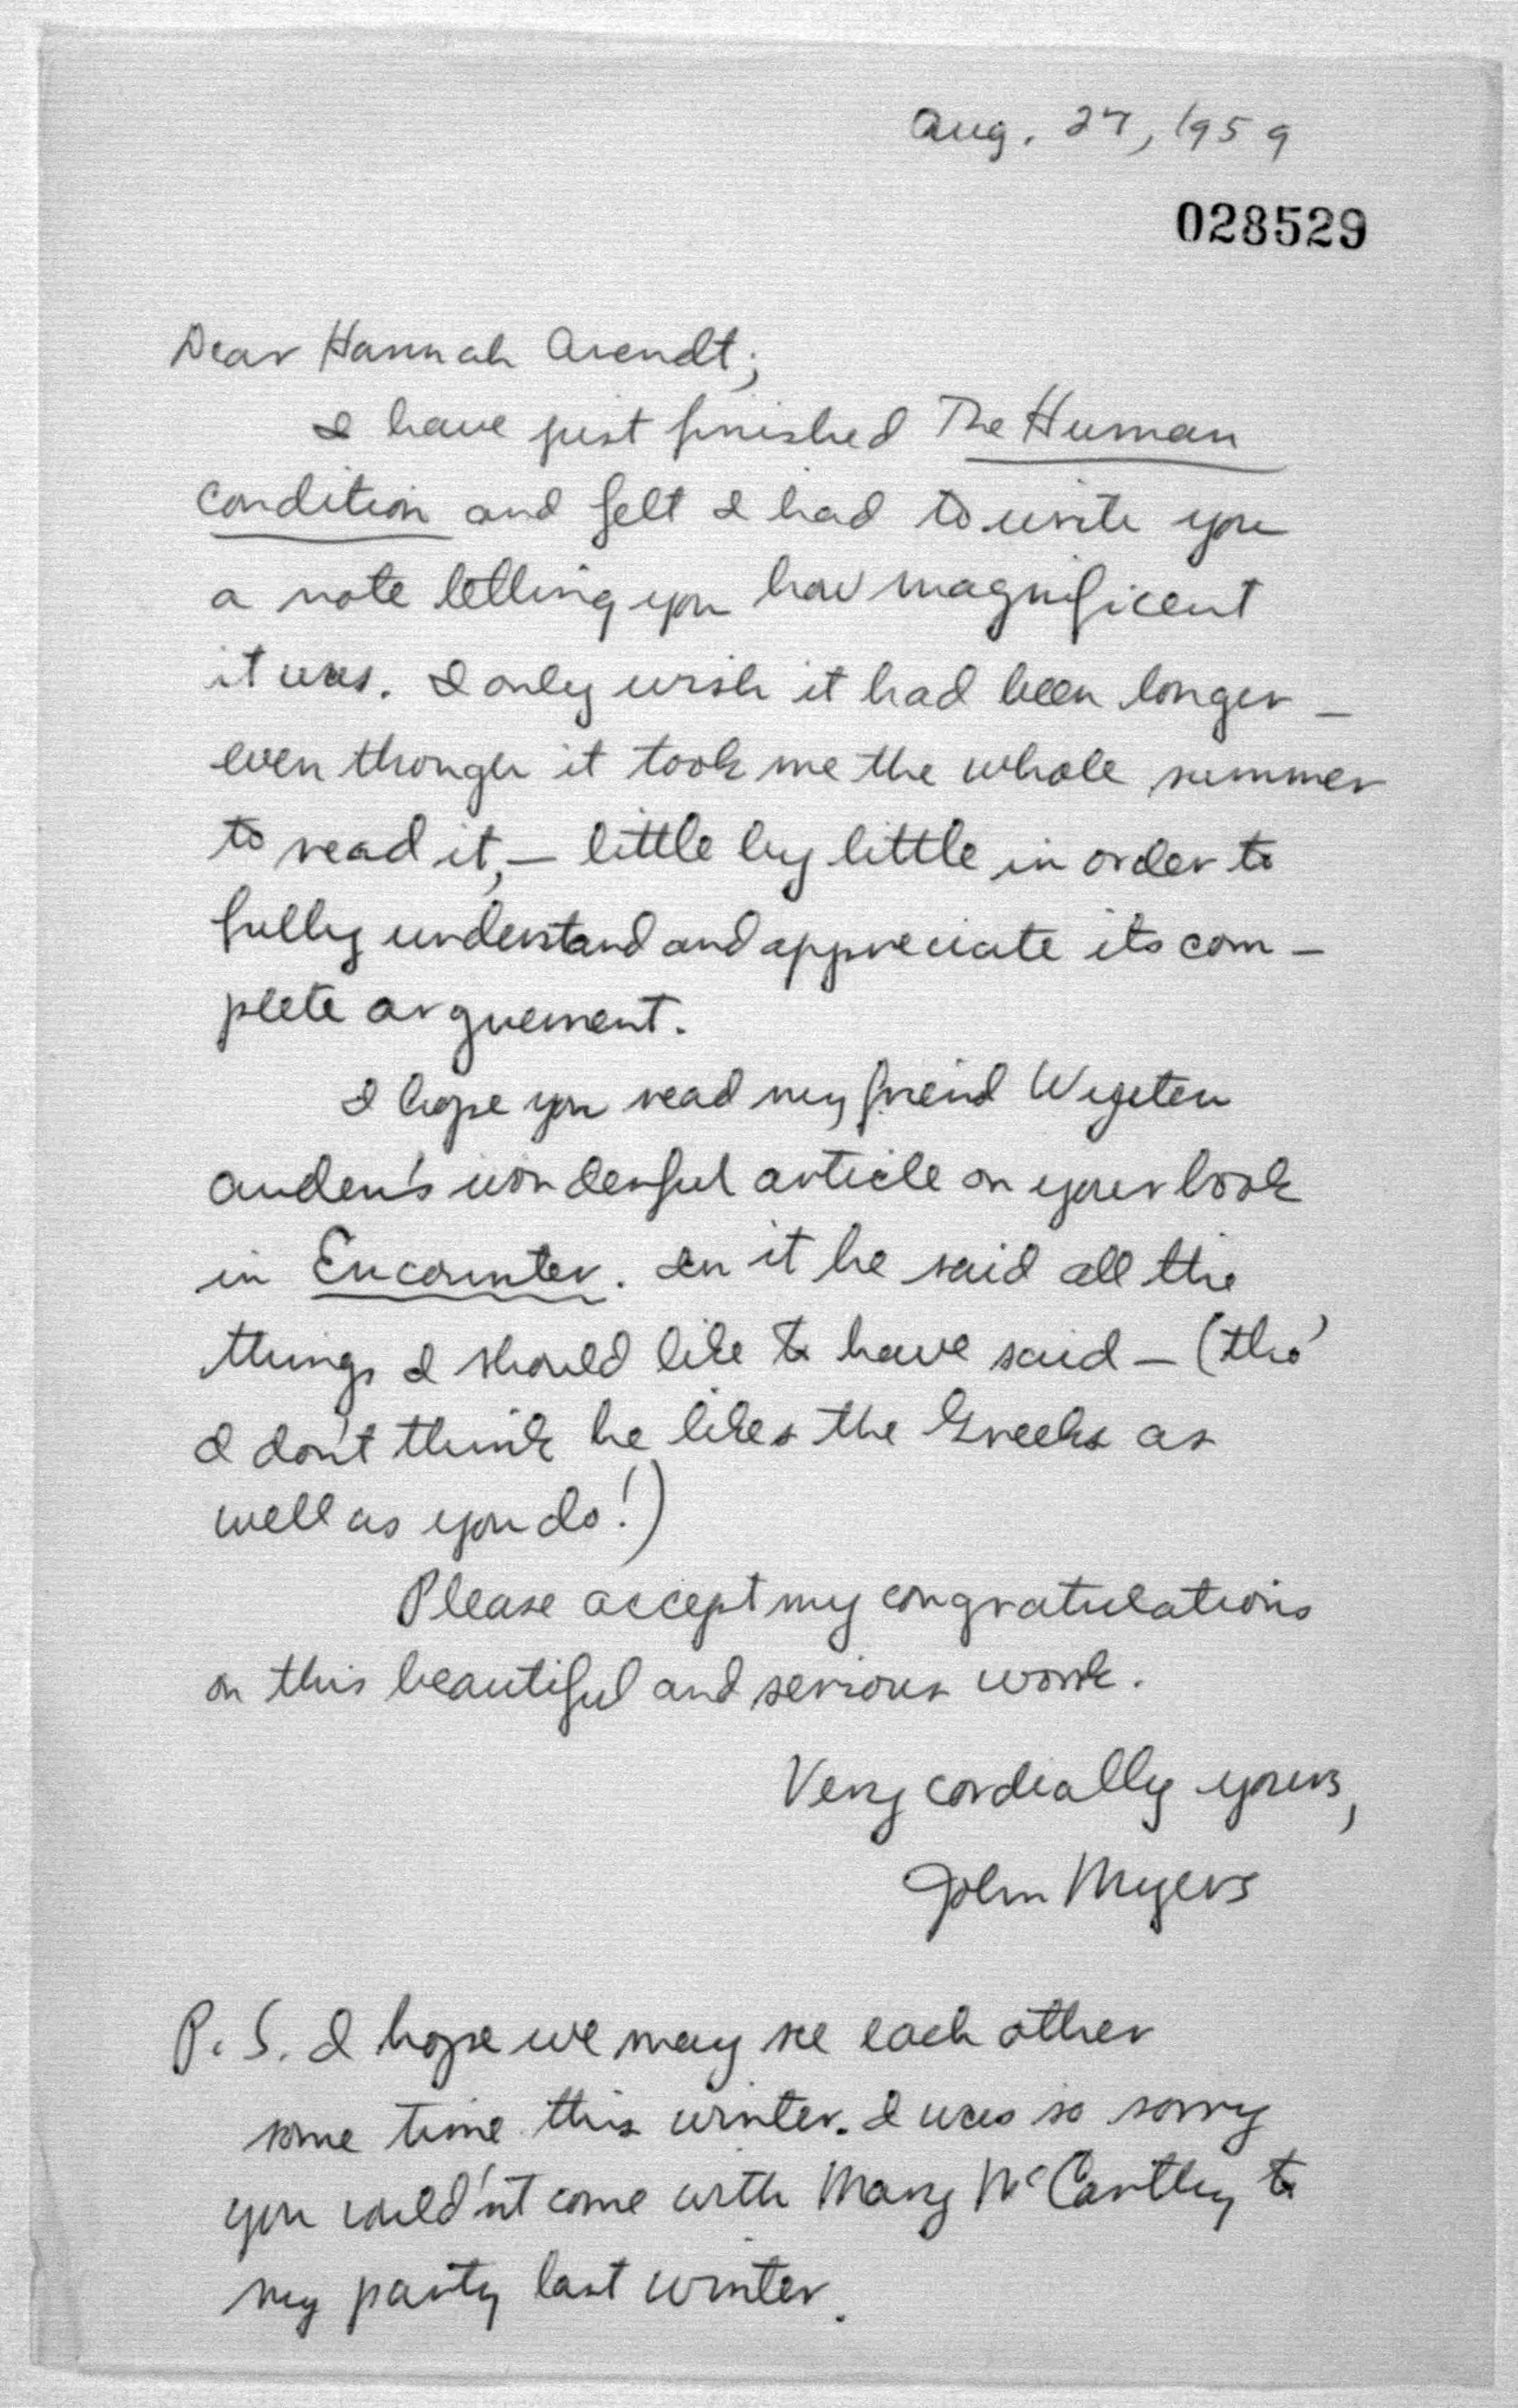 Aug. 27, 1959
028529
Dear Hannah Arendt;
I have just finished The Human
Condition and felt I had to write you
a note telling you how magnificent
it was. I only wish it had been longer —
even though it took me the whole summer
to read it, — little by little in order to
fully understand and appreciate its com-
plete arguement.
I hope you read my friend Wysten
Auden's wonderful article on your book
in Encounter. In it he said all the
things I should like to have said — (tho'
I don't think he likes the Greeks as
well as you do!)
Please accept my congratulations
on this beautiful and serious work.
Very cordially yours,
John Myers
P.S. I hope we may see each other
some time this winter. I was so sorry
you could'nt come with Mary McCarthy to
my party last winter.